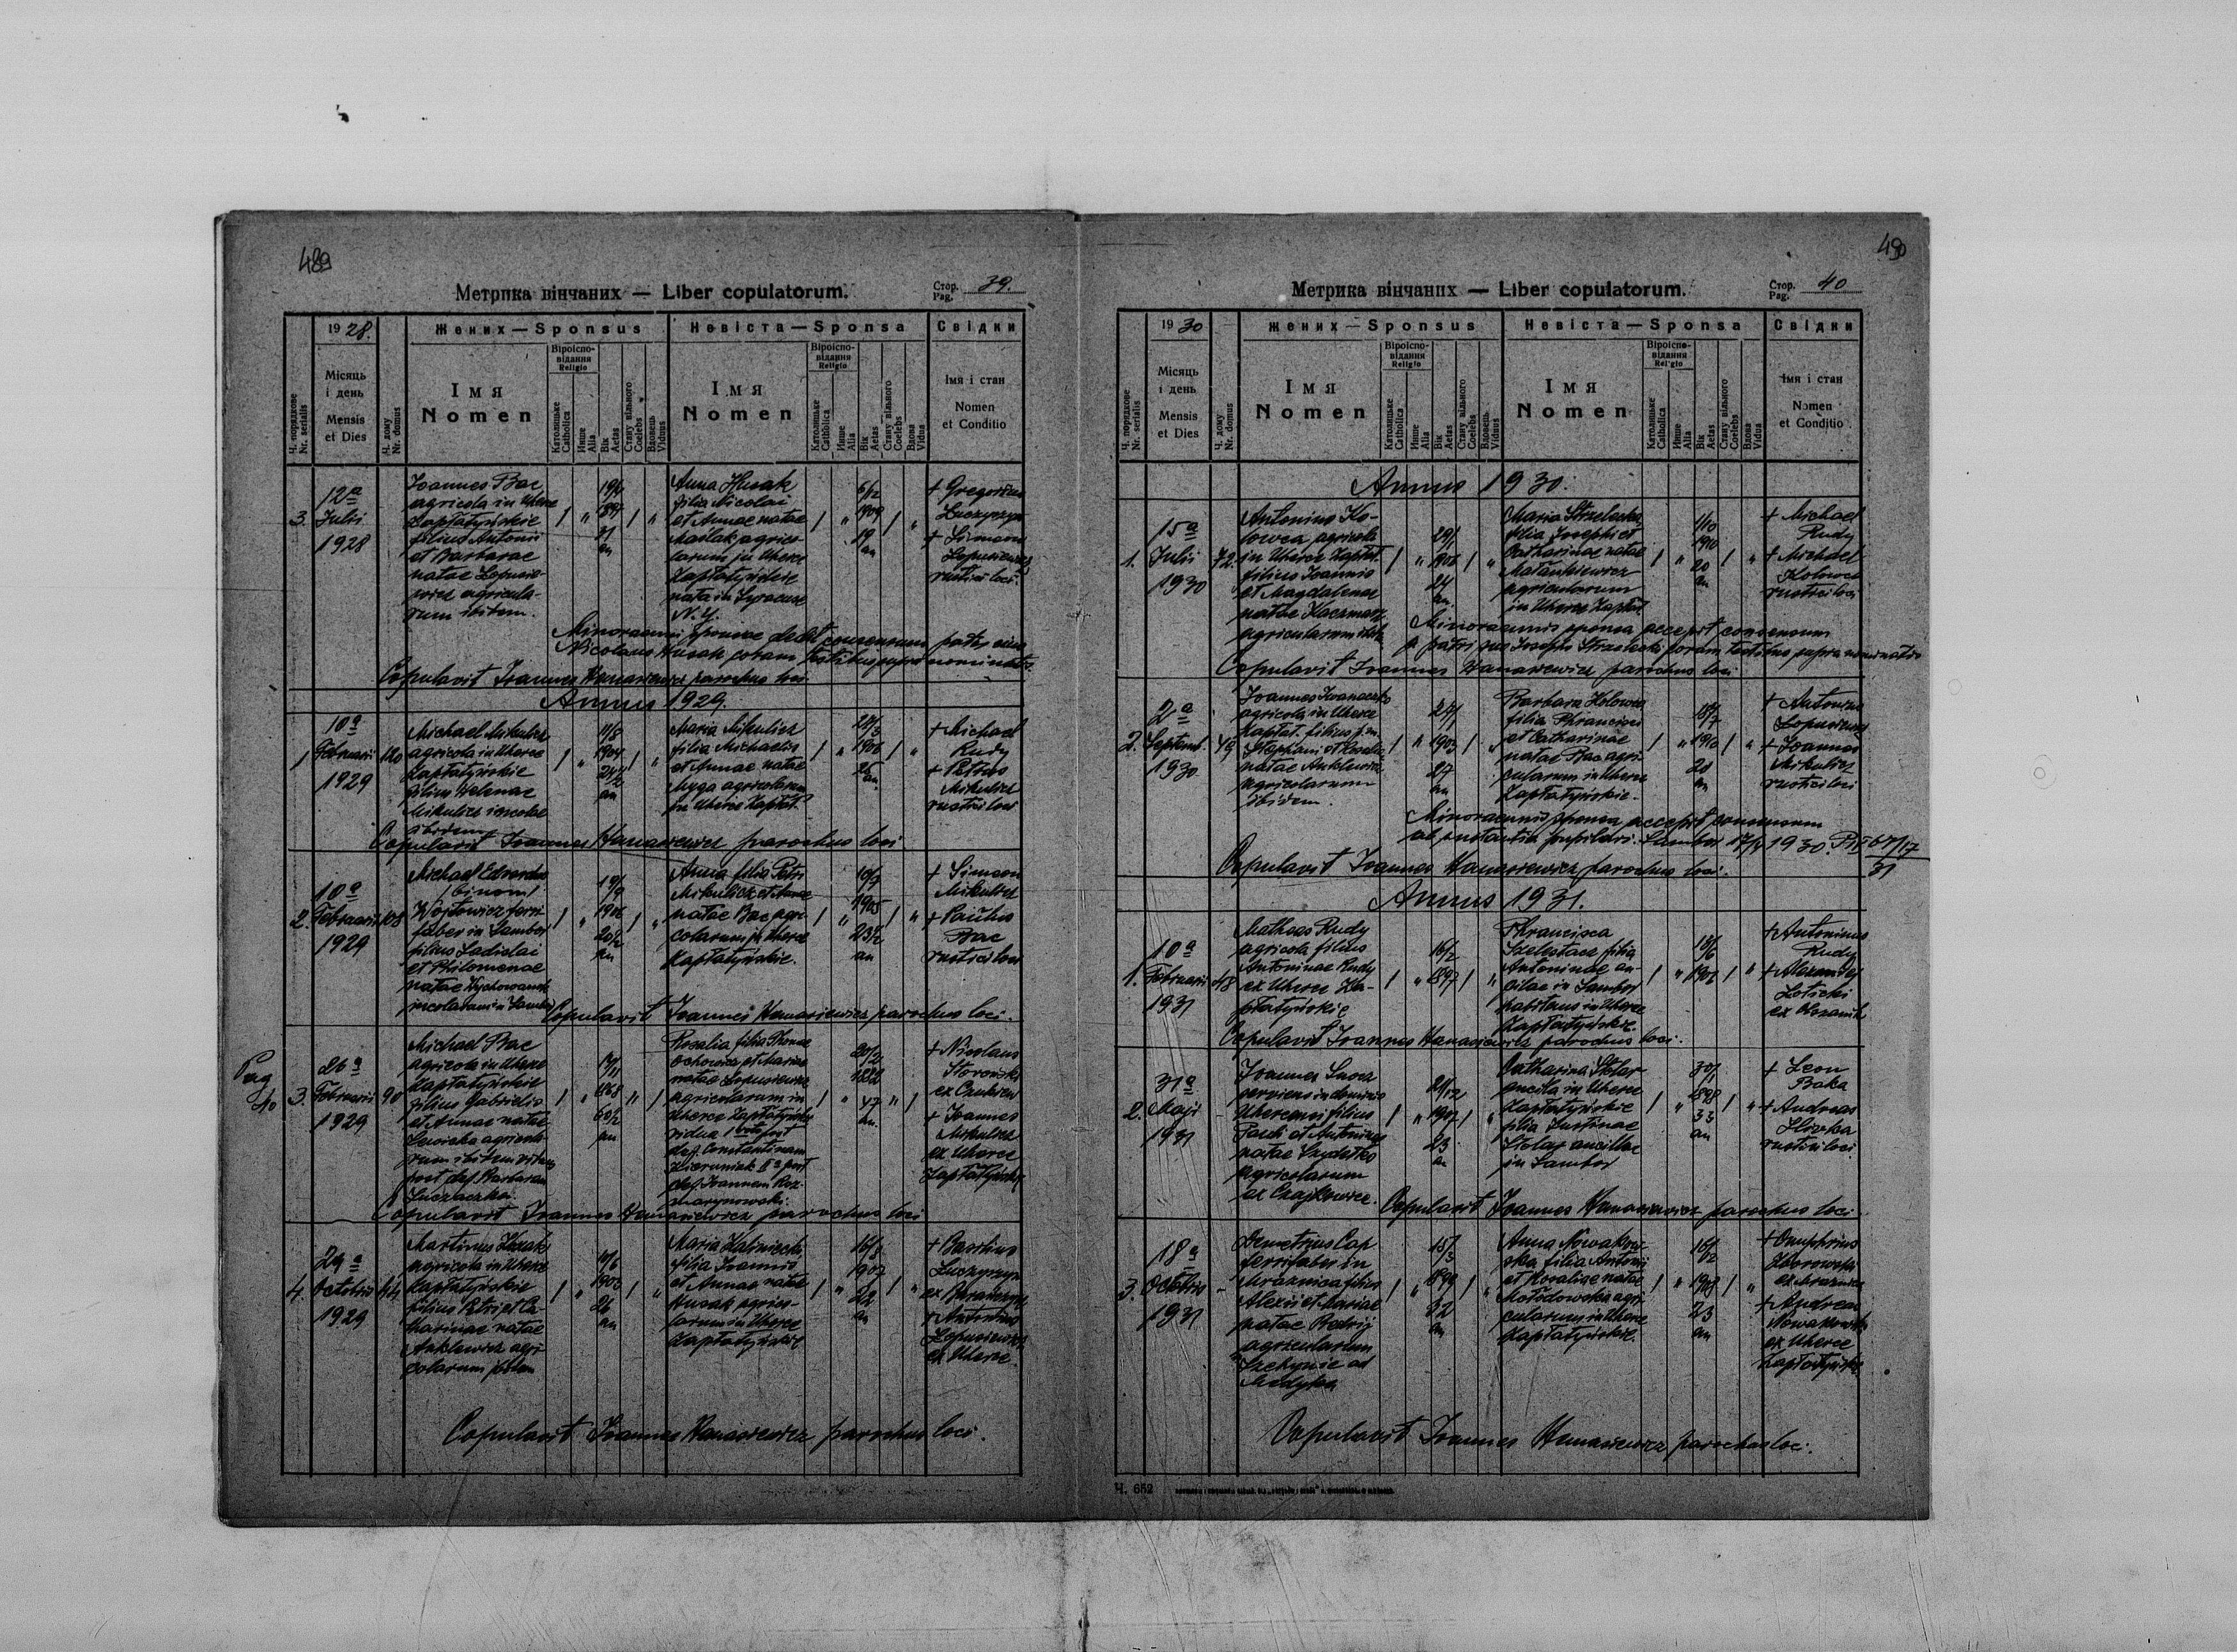 489
Метрика вінчаних — Liber copulatorum.
Стор. Pag. 39.
1928.
Жених — Sponsus
Невіста — Sponsa
Свідки
Ч. порядкове Nr. serialis
Місяць і день Mensis et Dies
Ч. дому Nr. domus
Імя Nomen
Віроіспо-відання Religio
Католицьке Catholica
Инше Alia
Вік Aetas
Стану вільного Coelebs
Вдовець Viduus
Імя Nomen
Віроіспо-відання Religio
Католицьке Catholica
Инше Alia
Вік Aetas
Стану вільного Coelebs
Вдова Vidua
Імя і стан Nomen et Conditio
3.
12a
Julii
1928
Joannes Bac
agricola in Uherce
Zapłatyńskie
filius Antonii
et Barbarae
natae Łopusie-
wicz agricola-
rum ibidem.
31
an
Anna Husak
filia Nicolai
et Annae natae
Maślak agrico-
larum in Uherce
Zapłatyńskie
nata in Syracuse
N. Y.
6/12
1909
19
an
+ Gregorius
Łuczyszyn
+ Simeon
Łopusiewicz
rustici loci.
Minorenni sponsae dedit consensum pater eius
Nicolaus Husak coram testibus supra nominatis.
Copulavit Joannes Hanasiewicz parochus loci
Annus 1929.
1
10a
Februarii
1929
120
Michael Mikulicz
agricola in Uherce
Zapłatyńskie
filius Helenae
Mikulicz incolae
ibidem
11/8
1904
24 1/2
an
Maria Mikulicz
filia Michaelis
et Annae natae
Myga agricolarum
in Uherce Zapłat.
1906
25
an.
+ Michael
Rudy
+ Petrus
Mikulicz
rustici loci
Copulavit Joannes Hanasiewicz parochus loci
2.
10a
Februarii
1929
108
Michael Edvardus
/binom/
Wojtowicz ferri-
faber in Sambor
filius Ladislai
et Philomenae
natae Wychowanek
incolarum in Sambor
an
Anna filia Petri
Mikulicz et Annae
natae Bac agri-
colarum in Uherce
Zapłatyńskie.
1905
23 1/2
an
+ Simeon
Mikulicz
+ Paulus
Bac
rustici loci
Copulavit Joannes Hanasiewicz parochus loci.
Pag
40
3.
26a
Februarii
1929
90
Michael Bac
agricola in Uherce
Zapłatyńskie
filius Gabrielis
et Annae natae
Lewicka agricola-
rum ibidem viduus
post def. Barbaram
1868
60 1/2
an
Rosalia filia Thomae
et Mariae
natae Łopusiewicz
agricolarum in
Uherce Zapłatyńskie
vidua 1 voto post
def. Constantinum
II o post
def. Joannem Roz-
marynowski.
1882
47
an.
+ Nicolaus
+ Joannes
Mikulicz
ex Uherce
Zapłatyńskie
Copulavit Joannes Hanasiewicz parochus loci
4.
29a
Octobris
1929
44
Martinus Husak
agricola in Uherce
Zapłatyńskie
filius Petri et Ca-
tharinae natae
Anklewicz agri-
colarum ibidem
1903
26
an
Maria Kaliniecka
filia Joannis
et Annae natae
Husak agrico-
larum in Uherce
Zapłatyńskie
16/8
1907
22
an
+ Basilius
Łuczyszyn
+ Antonius
Łopusiewicz
ex Uherce.
Copulavit Joannes Hanasiewicz parochus loci.
490
Метрика вінчаних — Liber copulatorum.
Стор. Pag. 40
1930
Жених — Sponsus
Невіста — Sponsa
Свідки
Ч. порядкове Nr. serialis
Місяць і день Mensis et Dies
Ч. дому Nr. domus
Імя Nomen
Віроіспо-відання Religio
Католицьке Catholica
Инше Alia
Вік Aetas
Стану вільного Coelebs
Вдовець Viduus
Імя Nomen
Віроіспо-відання Religio
Католицьке Catholica
Инше Alia
Вік Aetas
Стану вільного Coelebs
Вдова Vidua
Імя і стан Nomen et Conditio
Annus 1930.
1.
15a
Julii
1930
72.
Antonius Ho-
lowca agricola
in Uherce Zapłat.
filius Joannis
et Magdalenae
natae Kaczmarz
agricolarum ibid.
29/1
1906
24
an.
Maria Strzelecka
filia Josephi et
Catharinae natae
Matankiewicz
agricolarum
in Uherce Zapłat
1/10
1910
20
an
+ Michael
Rudy
+ Michael
Holowca
rustici loci
Minorennis sponsa accepit consensum
a patri suo Josepho Strzelecki coram testibus supra nominatis
Copulavit Joannes Hanasiewicz parochus loci
2.
2a
Septemb.
1930
49
Joannes Iwanaczko
agricola in Uherce
Zapłat. filius p.m.
Stephani et Rosaliae
natae Anklewicz
agricolarum
ibidem.
1903
27
an
Barbara Holowca
filia Francisci
et Catharinae
natae Bac agri-
colarum in Uherce
Zapłatyńskie.
18/7
1910
20
an
+ Antonius
Łopusiewicz
+ Joannes
Mikulicz
rustici loci
Minorennis sponsa accepit consensum
ab instantia pupilari. Sambor 17/4 1930.
Copulavit Joannes Hanasiewicz parochus loci.
Annus 1931.
1.
10a
Februarii
1931
48
Mathaeus Rudy
agricola filius
Antoninae Rudy
ex Uherce Za-
płatyńskie
16/2
1897
Francisca
Szelestacz filia
Antoninae an-
cillae in Sambor
habitans in Uherce
Zapłatyńskie.
18/6
1906
+ Antonius
Rudy
+ Alexander
Łoticki
Copulavit Joannes Hanasiewicz parochus loci.
2.
31a
Maji
1931
-
Joannes Sawa
serviens in dominio
Uhercensi filius
Pauli et Antoninae
natae Szydełko
agricolarum
ex Czajkowice.
21/12
1907
23
an
Catharina Stolar
ancilla in Uherce
Zapłatyńskie
filia Justinae
Stolar ancillae
in Sambor
30/1
1898
33
an
+ Leon
Baka
+ Andreas
Sliwka
rustici loci.
Copulavit Joannes Hanasiewicz parochus loci
3.
18a
Octobris
1931
-
Demetrius Cap
ferrifaber in
Mraznica filius
Alexii et Mariae
natae Bedrij
agricolarum
Szechynie ad
Medyka
15/3
1899
32
an
Anna Nowakow-
ska filia Antonii
et Rosaliae natae
Mołodowska agri-
colarum in Uherce
Zapłatyńskie.
16/2
1908
23
an
+ Onuphrius
Zborowski
ex Mraznica
+ Andreas
Nowakowski
ex Uherce
Zapłatyńskie
Copulavit Joannes Hanasiewicz parochus loci.
Ч. 652